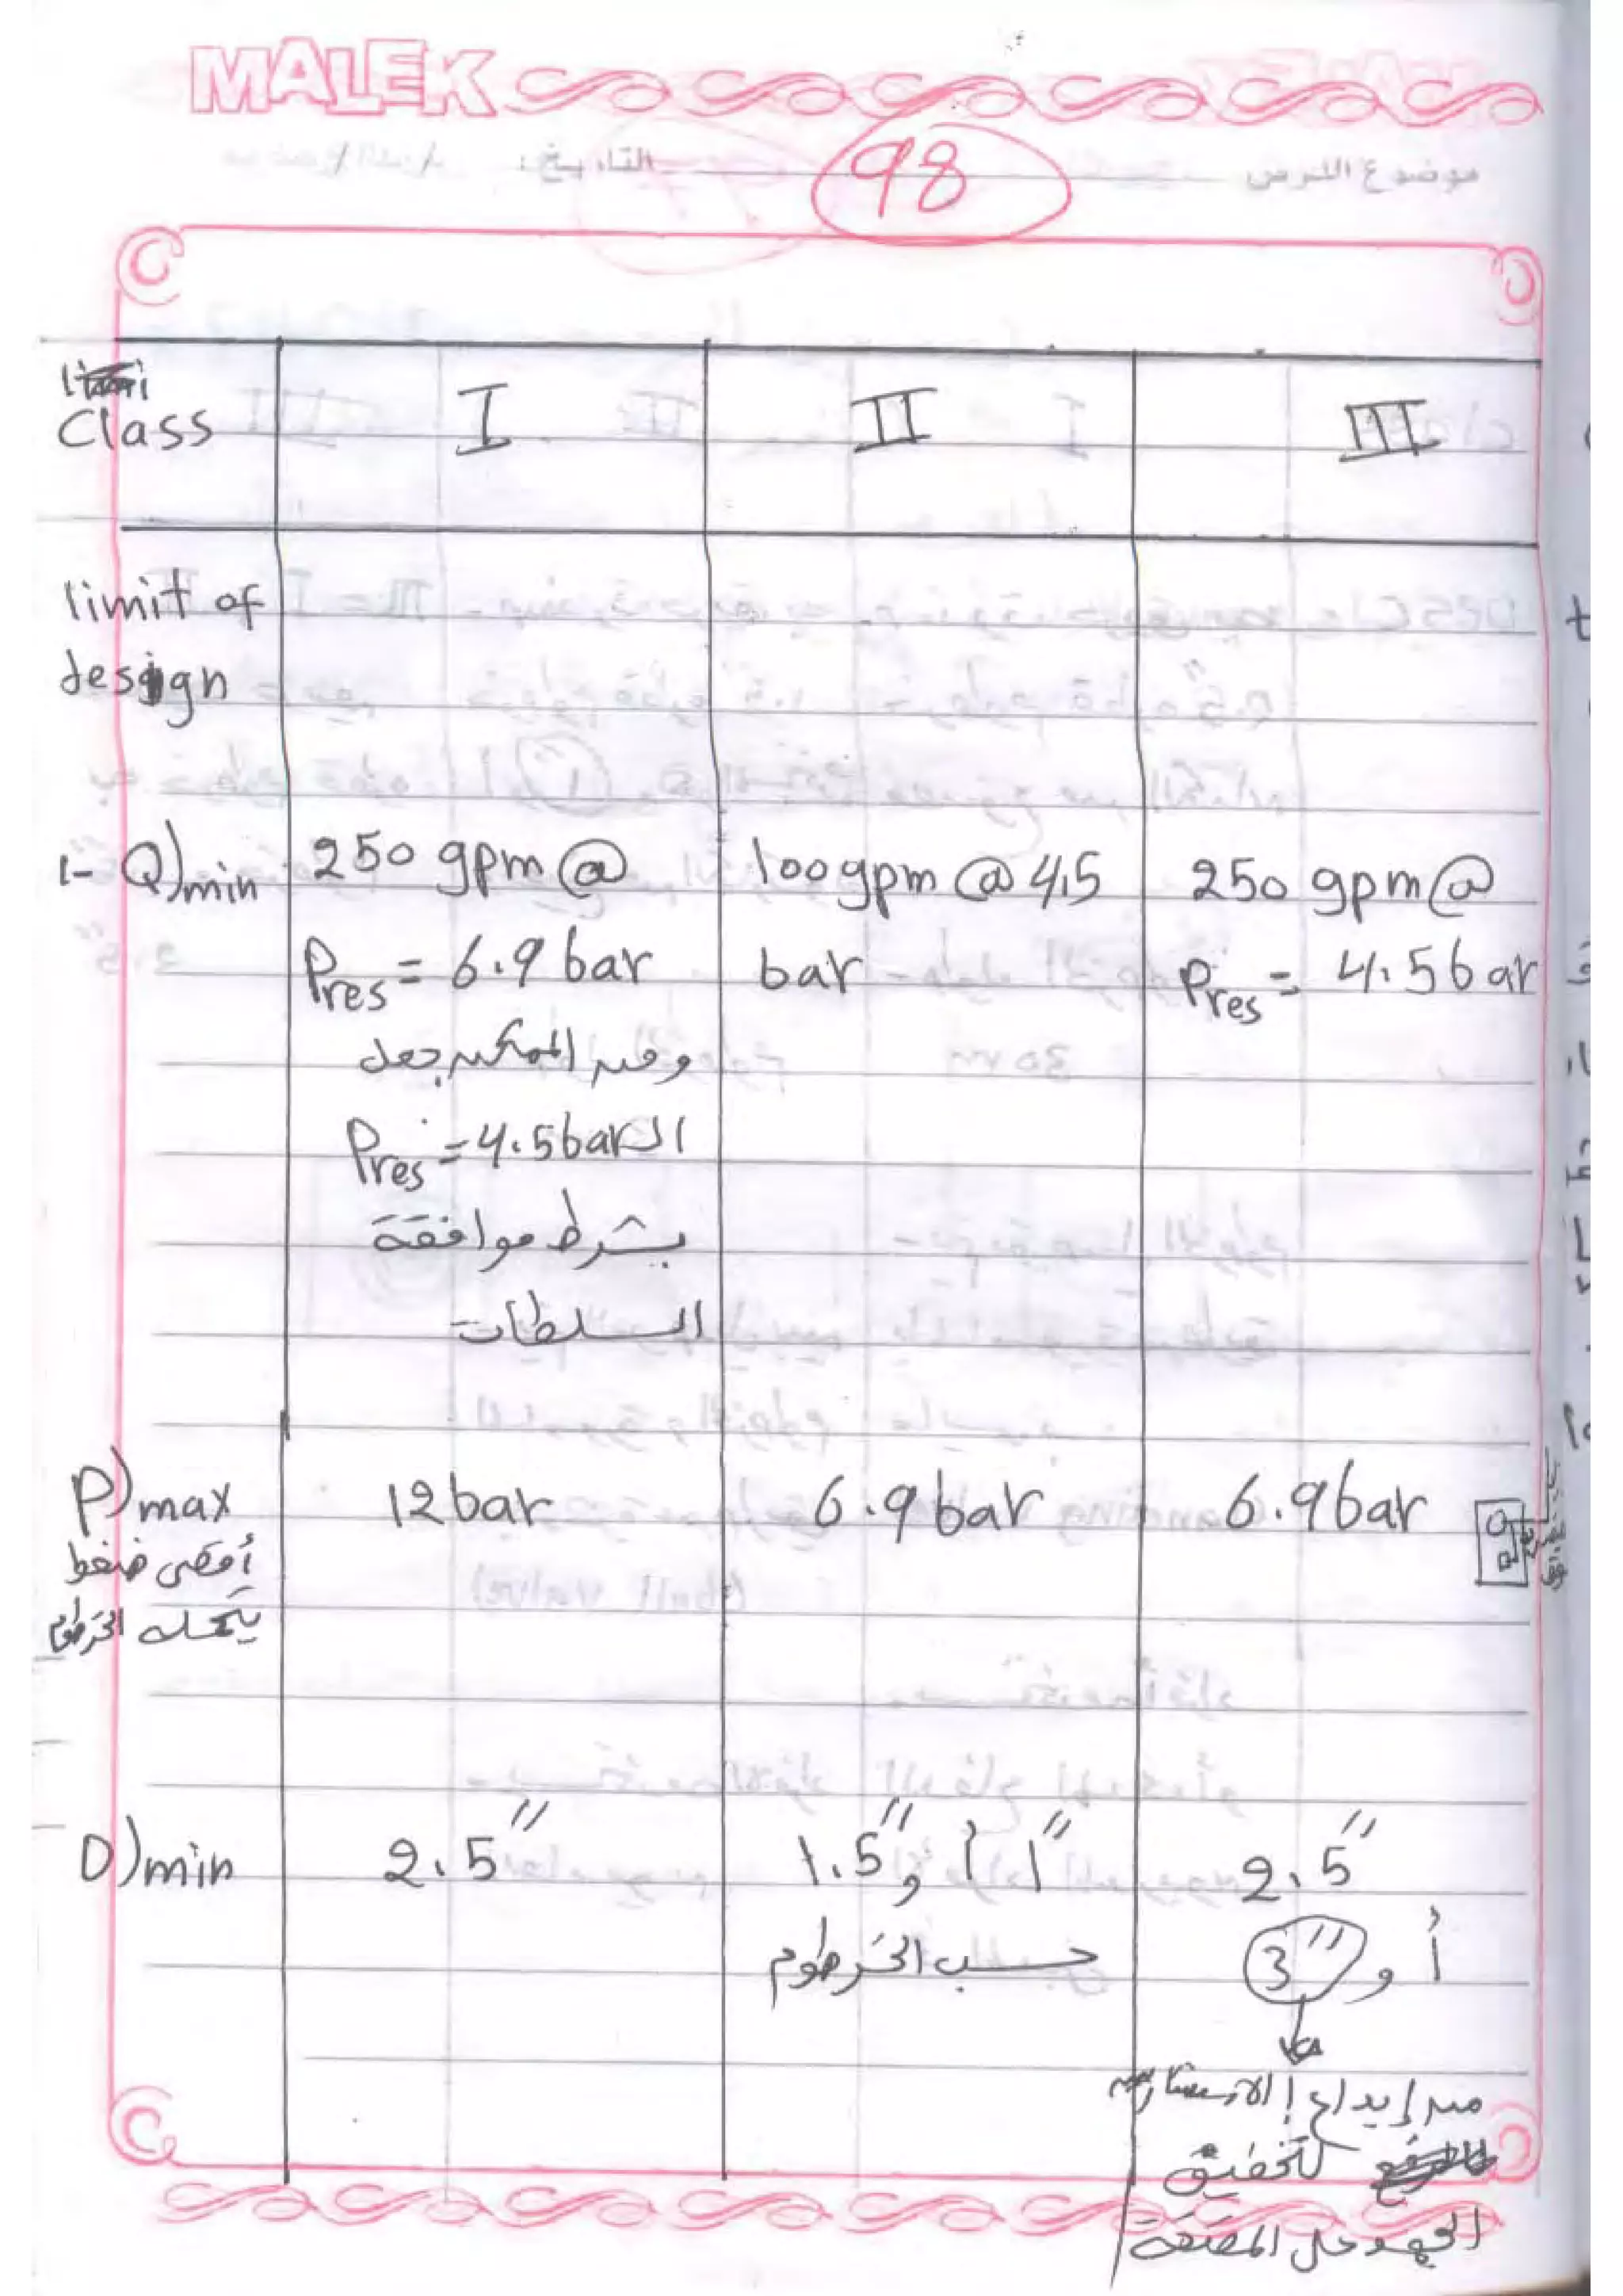 MALEK
موضوع الدرس
التاريخ :
98
Class
I
II
III
limit of
design
1- Q)min
250 gpm @
Pres = 6.9 bar
ومن الممكن جعل
الـ Pres = 4.5bar
بشرط موافقة
السلطات
100gpm @ 4,5
bar
250 gpm@
Pres = 4.5bar
P)max
أقصى ضغط
يتحمله الخرطوم
12bar
6.9bar
6.9bar
D)min
2.5"
1.5" أو 1"
حسب الخرطوم
2.5"
أو 3"
من إبداع الاستشاري
لتخفيف
الجهد على المضخة